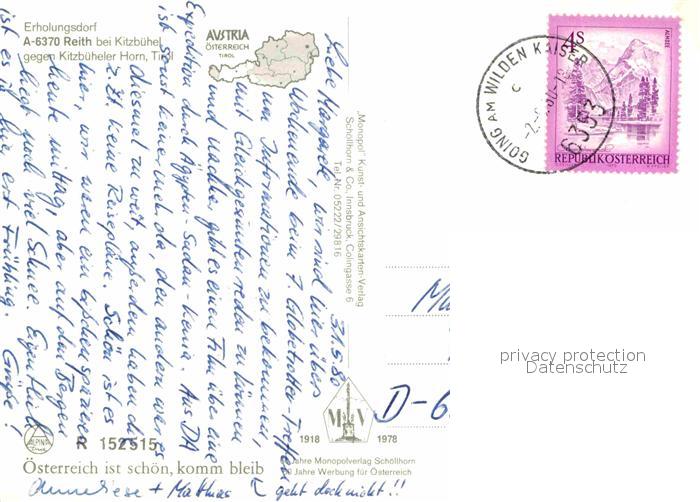 Erholungsdorf
A-6370 Reith bei Kitzbühel
gegen Kitzbüheler Horn, Tirol
AVSTRIA
ÖSTERREICH
TIROL
31.5.80
Liebe Margarete, wir sind hier übers
Wochenende beim 7. Globetrotter-Treffen
um Informationen zu bekommen,
mit Gleichgesinnten reden zu können
und nachher geht es einen Film über eine
Expedition durch Ägypten-Sudan-Kenia. Aus DA
ist sonst keiner mehr da, den andern war es
diesmal zu weit, außerdem haben die
z. Zt. keine Reisepläne. Schön ist es
hier, wir waren ein bißchen spazieren
heute mittag, aber auf den Bergen
liegt noch viel Schnee. Eigentlich
ist es hier erst Frühling. Grüße!
Anneliese + Matthias
geht doch nicht!!
"Monopol" Kunst- und Ansichtskarten-Verlag
Schöllhorn & Co. Innsbruck Colingasse 6
Tel.-Nr. 05222/29816
ALPINA
R 152515
Österreich ist schön, komm bleib
M V
1918 1978
Jahre Monopolverlag Schöllhorn
Jahre Werbung für Österreich
4S
ALMSEE
REPUBLIK ÖSTERREICH
GOING AM WILDEN KAISER
6353
c
D-6
privacy protection
Datenschutz